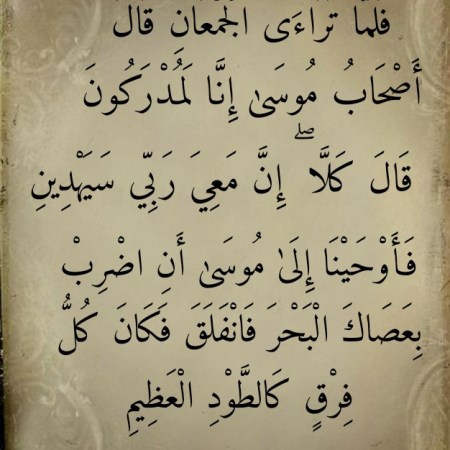 فَلَمَّا تَرَاءَى الْجَمْعَانِ قَالَ
أَصْحَابُ مُوسَىٰ إِنَّا لَمُدْرَكُونَ
قَالَ كَلَّا ۖ إِنَّ مَعِيَ رَبِّي سَيَهْدِينِ
فَأَوْحَيْنَا إِلَىٰ مُوسَىٰ أَنِ اضْرِبْ
بِعَصَاكَ الْبَحْرَ فَانْفَلَقَ فَكَانَ كُلُّ
فِرْقٍ كَالطَّوْدِ الْعَظِيمِ